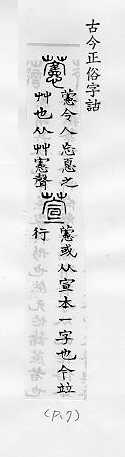 古今正俗字詁
藼
藼令人忘𢝊之
艸也从艸憲聲
萱
藼或从宣本一字也今竝
行
(P.7)